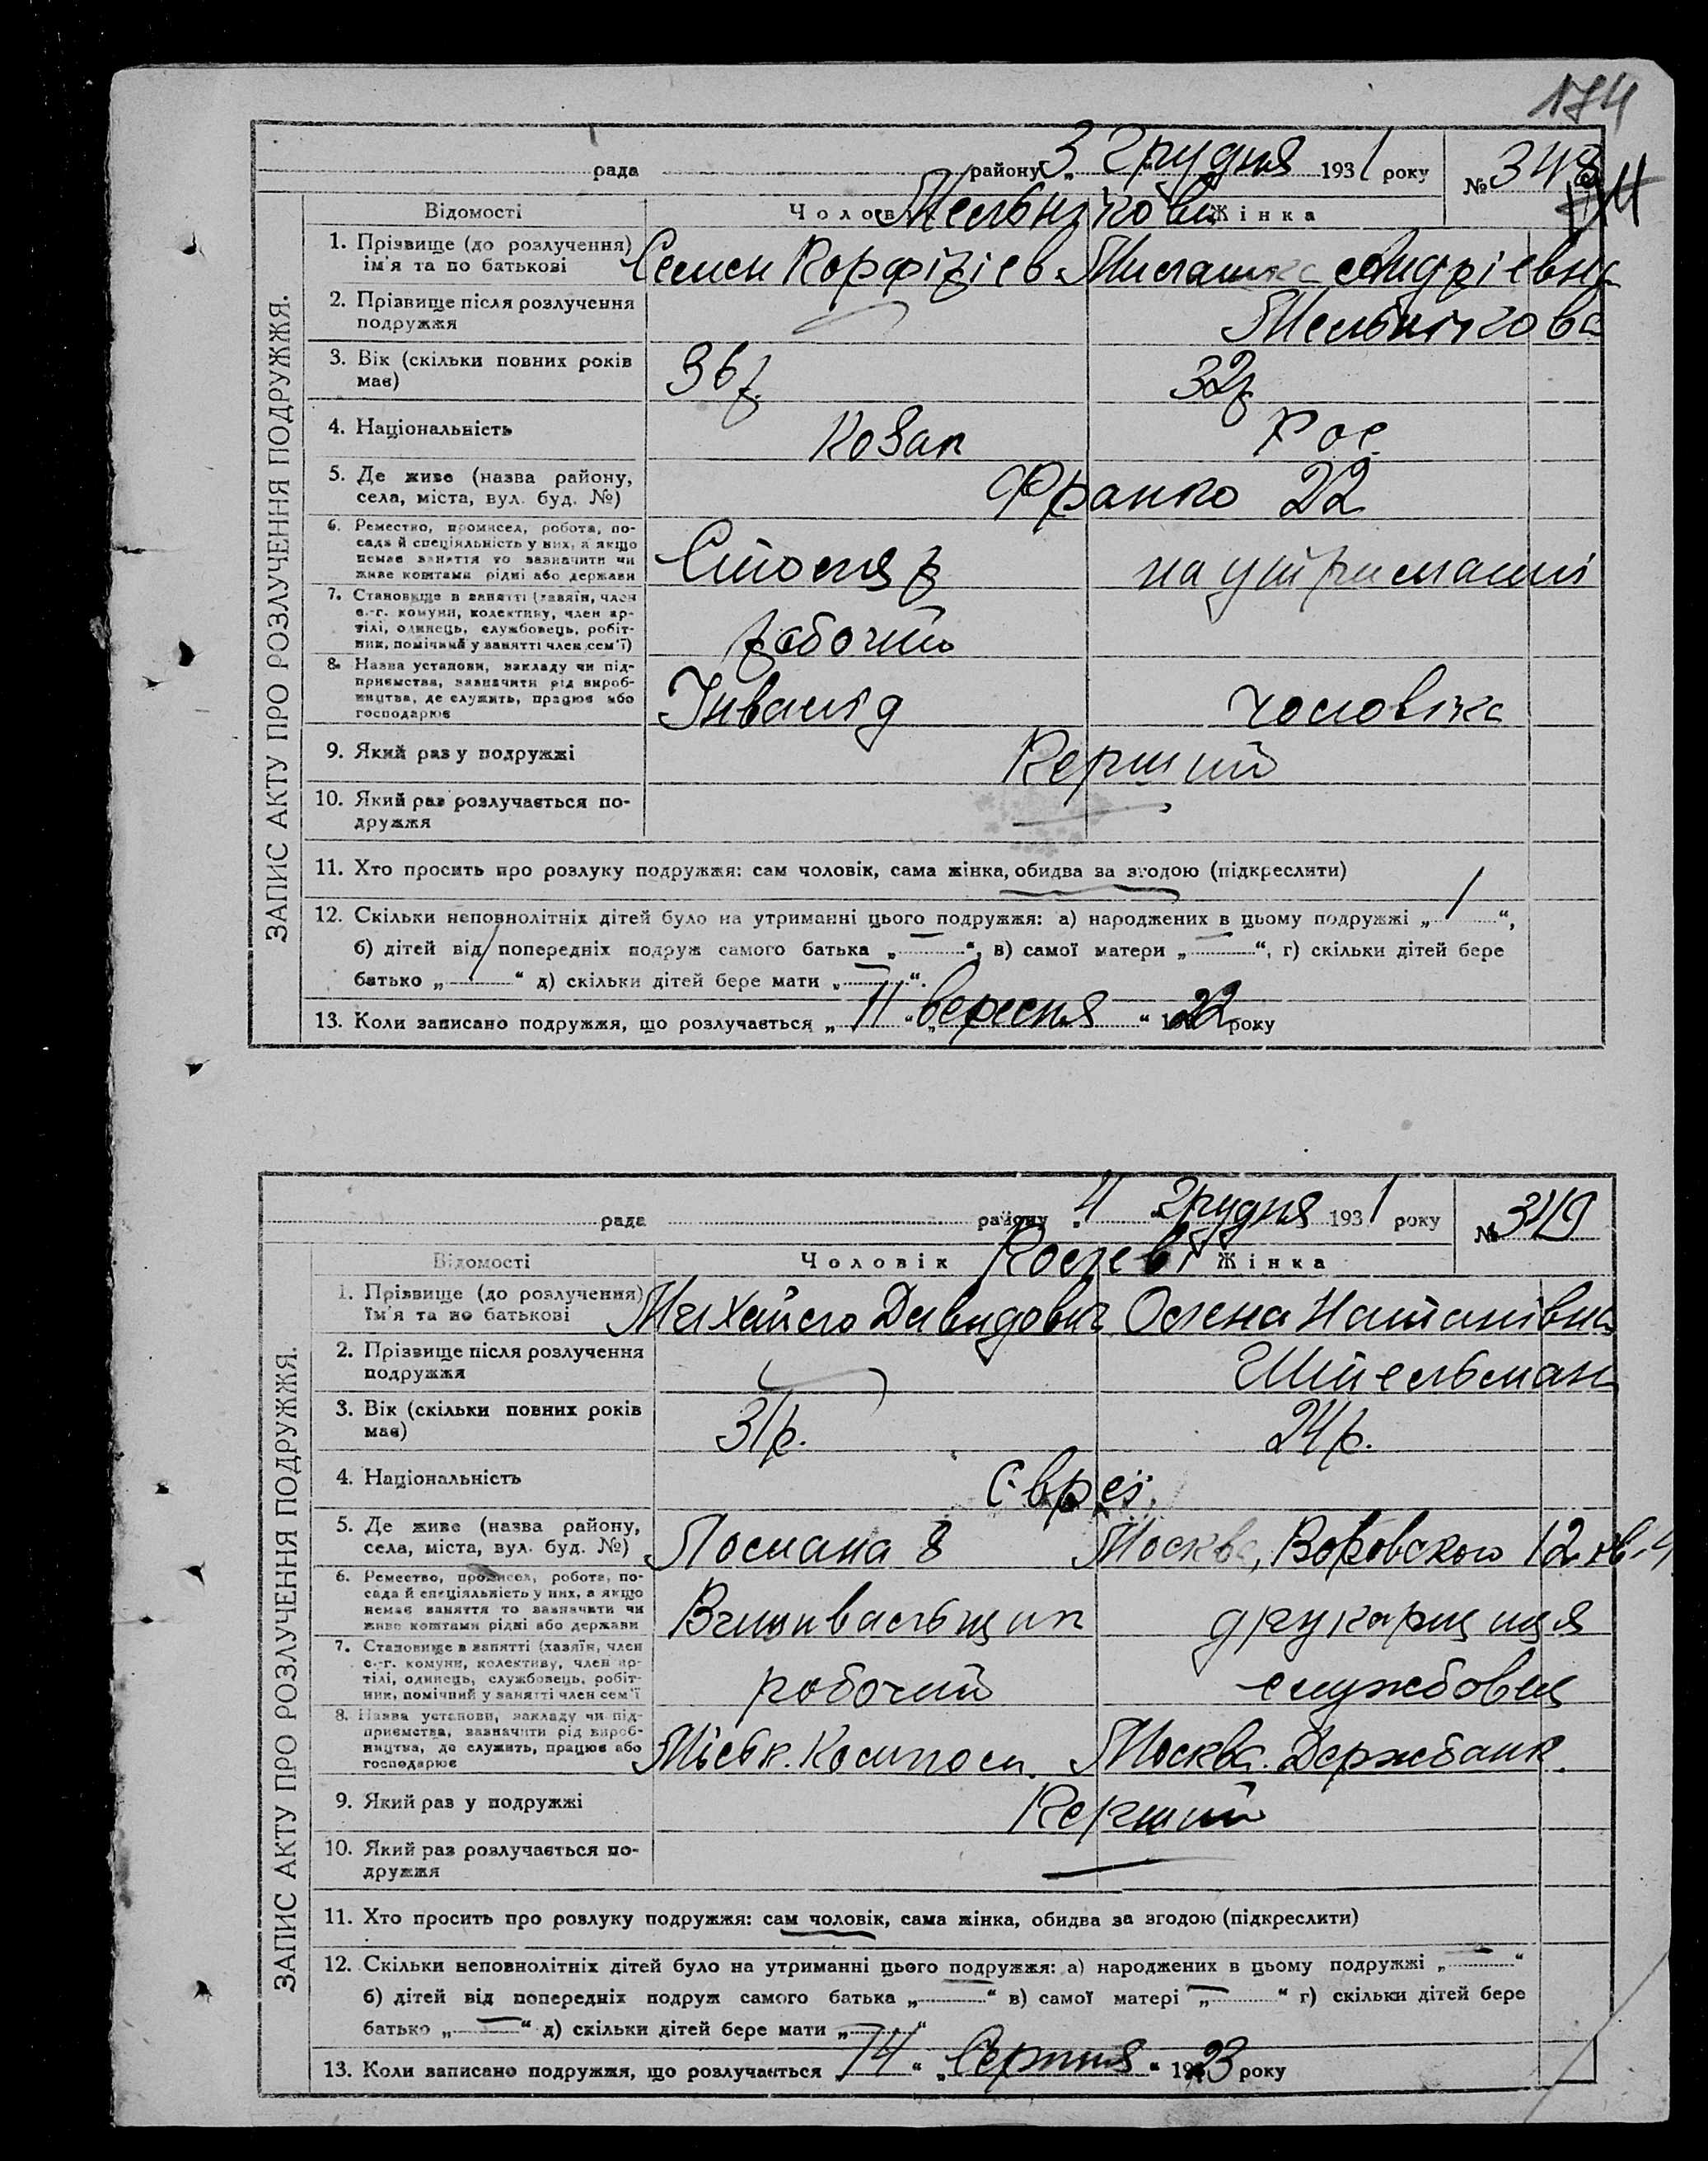 174
рада района 3 Грудня 1931 року № 348
174
Відомості Чоловік Жінка
Мельнікови
ЗАПИС АКТУ ПРО РОЗЛУЧЕННЯ ПОДРУЖЖЯ.
1. Прізвище (до розлучення)
ім'я та по батькові
Семен Андріевна
2. Прізвище після розлучення
подружжя
Мельнікова
3. Вік (скільки повних років
має)
36 р. 32 р.
4. Національність
Козак Рос
5. Де живе (назва району,
села, міста, вул. буд. №)
Франко 22
6. Ремество, промисел, робота, по-
сада й спеціяльність у них, а якщо
немає заняття то зазначити чи
живе коштами рідні або держави
Столяр на утриманні
7. Становище в занятті (хазяїн, член
с.-г. комуни, колективу, член ар-
тілі, одинець, службовець, робіт-
ник, помічний у занятті член сем'ї)
рабочий
8. Назва установи, закладу чи під-
приємства, зазначити рід вироб-
ництва, де служить, працює або
господарює
Інвалід чоловіка
9. Який раз у подружжі
Перший
10. Який раз розлучається по-
дружжя
11. Хто просить про розлуку подружжя: сам чоловік, сама жінка, обидва за згодою (підкреслити)
12. Скільки неповнолітніх дітей було на утриманні цього подружжя: а) народжених в цьому подружжі „ 1 “,
б) дітей від попередніх подруж самого батька „ — “, в) самої матери „ — “, г) скільки дітей бере
батько „ 1 “ д) скільки дітей бере мати „ — “.
13. Коли записано подружжя, що розлучається „ 11 “ „ вересня “ 1922 року
рада району 4 Грудня 1931 року № 349
Відомості Чоловік Жінка
ЗАПИС АКТУ ПРО РОЗЛУЧЕННЯ ПОДРУЖЖЯ.
1. Прізвище (до розлучення)
їм'я та по батькові
Михайло Давидович Олена Натанівна
2. Прізвище після розлучення
подружжя
Штельман
3. Вік (скільки повних років
має)
31 р. 24 р.
4. Національність
Євреї.
5. Де живе (назва району,
села, міста, вул. буд. №)
8 Москва, Воровского 12 кв. 4
6. Ремество, промисел, робота, по-
сада й спеціяльність у них, а якщо
немає заняття то зазначити чи
живе коштами рідні або держави
друкарщиця
7. Становище в занятті (хазяїн, член
с.-г. комуни, колективу, член ар-
тілі, одинець, службовець, робіт-
ник, помічний у занятті член сем'ї
робочий службовец
8. Назва установи, закладу чи під-
приємства, зазначити рід вироб-
ництва, де служить, працює або
господарює
Міськ. Москва. Держбанк.
9. Який раз у подружжі
Перший
10. Який раз розлучається по-
дружжя
11. Хто просить про розлуку подружжя: сам чоловік, сама жінка, обидва за згодою (підкреслити)
12. Скільки неповнолітніх дітей було на утриманні цього подружжя: а) народжених в цьому подружжі „ — “
б) дітей від попередніх подруж самого батька „ — “ в) самої матері „ — “ г) скільки дітей бере
батько „ — “ д) скільки дітей бере мати „ — “
13. Коли записано подружжя, що розлучається „ 14 “ „ Серпня “ 1923 року